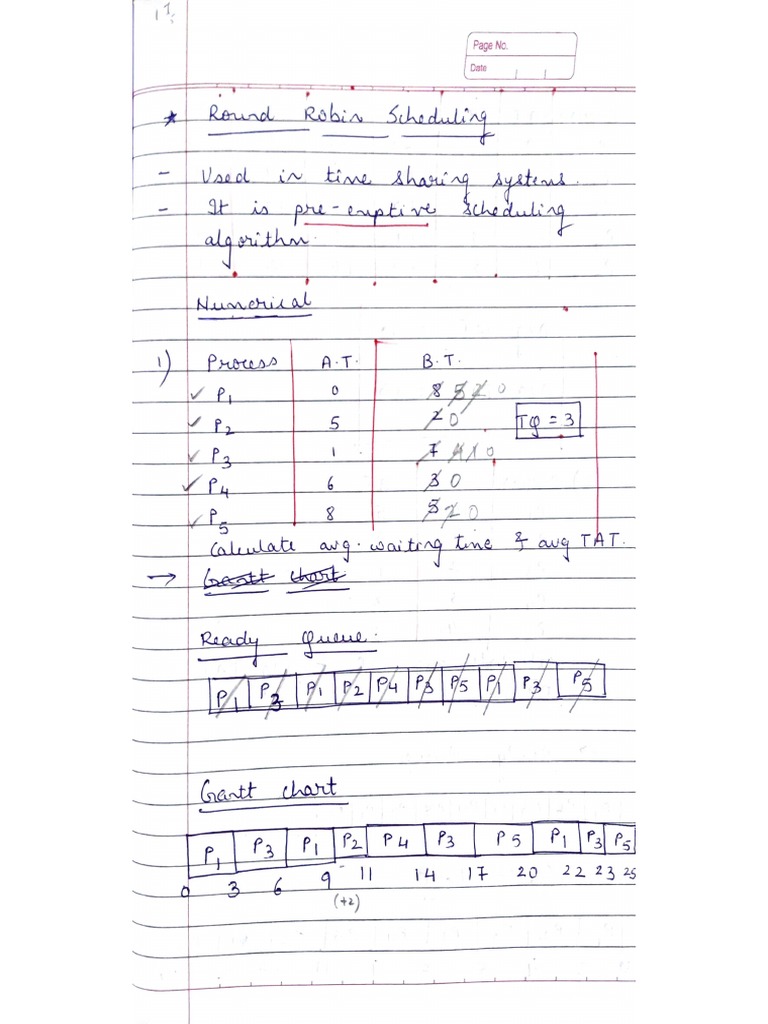 Page No.
Date
* Round Robin Scheduling
- Used in time sharing systems.
- It is pre-emptive scheduling
algorithm.
Numerical
1) Process A.T. B.T.
P1 0 8 5 2 0
P2 5 2 0 TQ = 3
P3 1 7 4 1 0
P4 6 3 0
P5 8 5 2 0
Calculate avg. waiting time & avg TAT.
→ Gantt chart
Ready Queue:
P1 P3 P1 P2 P4 P3 P5 P1 P3 P5
Gantt chart
P1 P3 P1 P2 P4 P3 P5 P1 P3 P5
0 3 6 9 11 14 17 20 22 23 25
(+2)